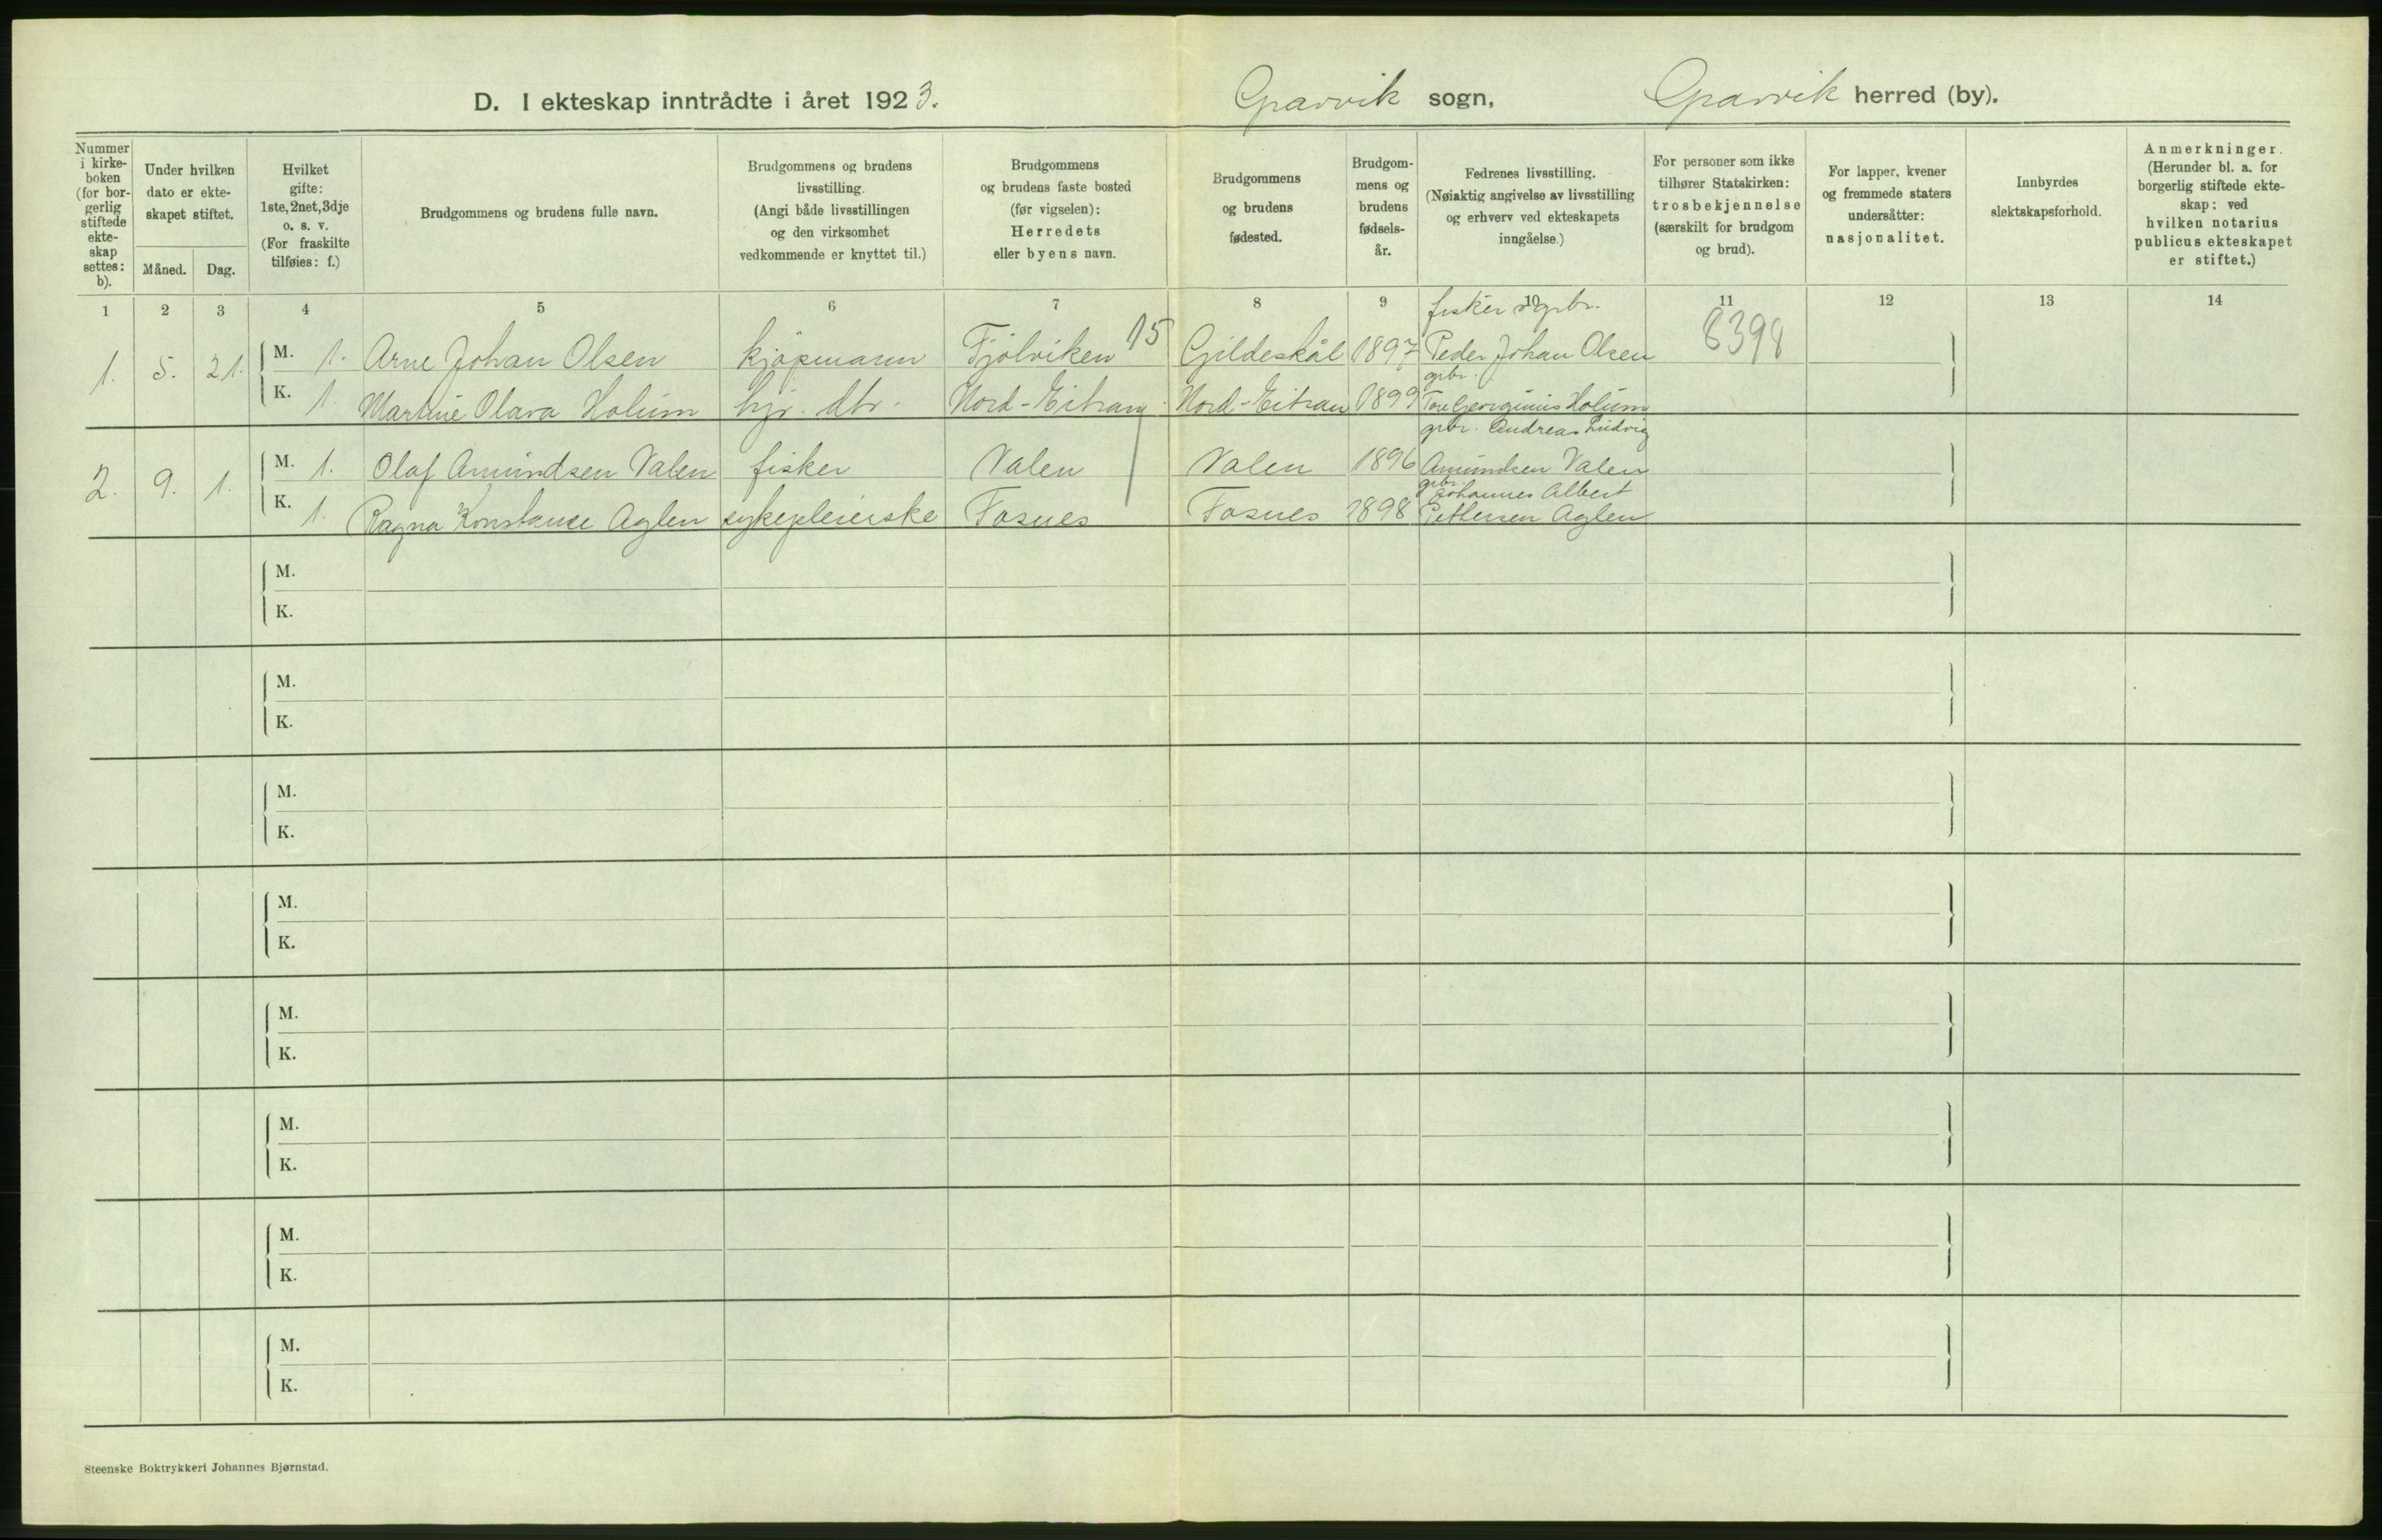 D. I ekteskap inntrådte i året 1923. Gravvik sogn, Gravvik herred (by).
Nummer i kirke-boken (for bor-gerlig stiftede ekte-skap settes: b).
Under hvilken dato er ekte-skapet stiftet.
Måned. Dag.
Hvilket gifte: 1ste, 2net, 3dje o. s. v. (For fraskilte tilføies: f.)
Brudgommens og brudens fulle navn.
Brudgommens og brudens livsstilling. (Angi både livsstillingen og den virksomhet vedkommende er knyttet til.)
Brudgommens og brudens faste bosted (før vigselen): Herredets eller byens navn.
Brudgommens og brudens fødested.
Brudgom-mens og brudens fødsels-år.
Fedrenes livsstilling. (Nøiaktig angivelse av livsstilling og erhverv ved ekteskapets inngåelse.)
For personer som ikke tilhører Statskirken: trosbekjennelse (særskilt for brudgom og brud).
For lapper, kvener og fremmede staters undersåtter: nasjonalitet.
Innbyrdes slektskapsforhold.
Anmerkninger. (Herunder bl. a. for borgerlig stiftede ekte-skap: ved hvilken notarius publicus ekteskapet er stiftet.)
1 2 3 4 5 6 7 8 9 10 11 12 13 14
fisker og grbr.
1. 5. 21. M. 1. Arne Johan Olsen kjøpmann Fjølviken 15 Gildeskål 1897 Peder Johan Olsen 8398
grbr.
K. 1. Martine Olava Holum hjv. dtr. Nord-Eitran Nord-Eitran 1899 Tore Georginius Holum
grbr. Andreas Ludvig
2. 9. 1. M. 1. Olaf Amundsen Valen fisker Valen Valen 1896 Amundsen Valen
grbr. Johannes Albert
K. 1. Ragna Konstanse Aglen sykepleierske Fosnes Fosnes 1898 Pettersen Aglen
M.
K.
M.
K.
M.
K.
M.
K.
M.
K.
M.
K.
M.
K.
M.
K.
Steenske Boktrykkeri Johannes Bjørnstad.